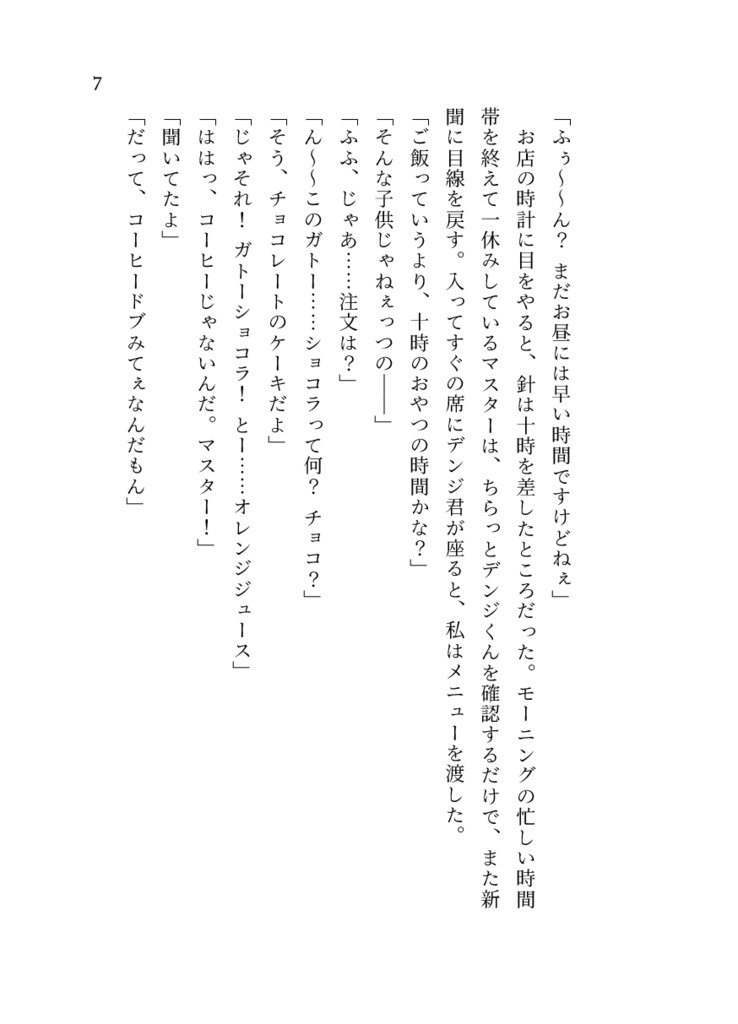 「ふぅ～～ん？　まだお昼には早い時間ですけどねぇ」
　お店の時計に目をやると、針は十時を差したところだった。モーニングの忙しい時間
帯を終えて一休みしているマスターは、ちらっとデンジくんを確認するだけで、また新
聞に目線を戻す。入ってすぐの席にデンジ君が座ると、私はメニューを渡した。
「ご飯っていうより、十時のおやつの時間かな？」
「そんな子供じゃねぇっつの――」
「ふふ、じゃあ……注文は？」
「ん～～このガトー……ショコラって何？　チョコ？」
「そう、チョコレートのケーキだよ」
「じゃそれ！　ガトーショコラ！　とー……オレンジジュース」
「ははっ、コーヒーじゃないんだ。マスター！」
「聞いてたよ」
「だって、コーヒードブみてぇなんだもん」
7